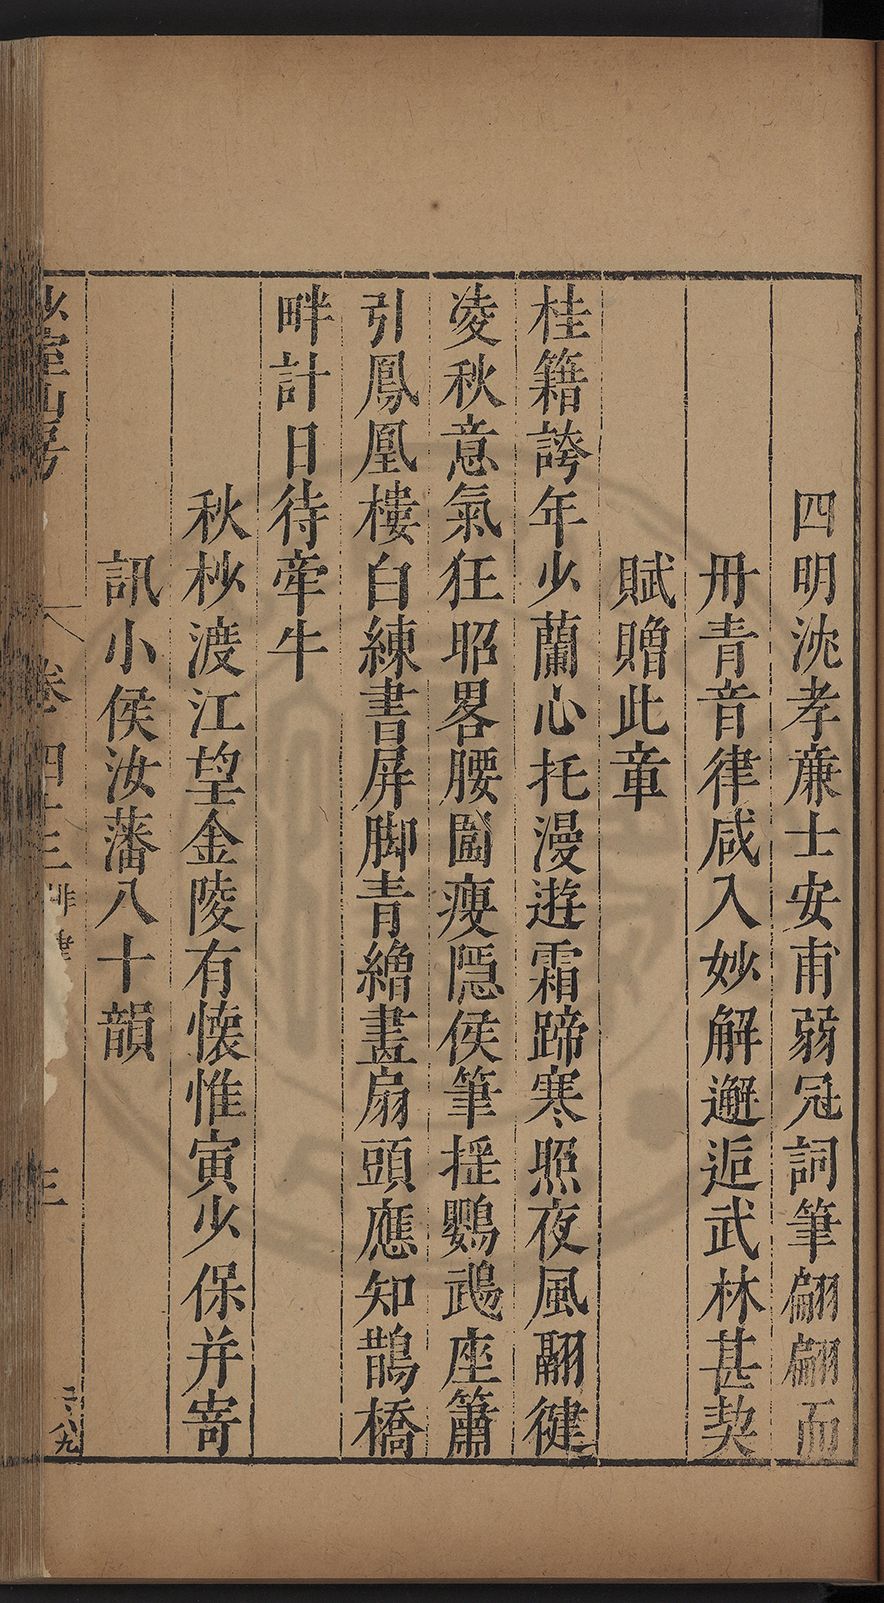 四明沈孝廉士安甫弱冠詞筆翩翩而
丹青音律咸入妙解邂逅武林甚契
賦贈此章
桂籍誇年少蘭心托漫遊霜蹄寒照夜風翮健
凌秋意氣狂昭畧腰圍瘦隱侯筆揺鸚鵡座簫
引鳳凰樓白練書屏脚青繒畫扇頭應知鵲橋
畔計日待牽牛
秋杪渡江望金陵有懷惟寅少保并寄
訊小侯汝藩八十韻
少室山房
卷四十三 排律
三